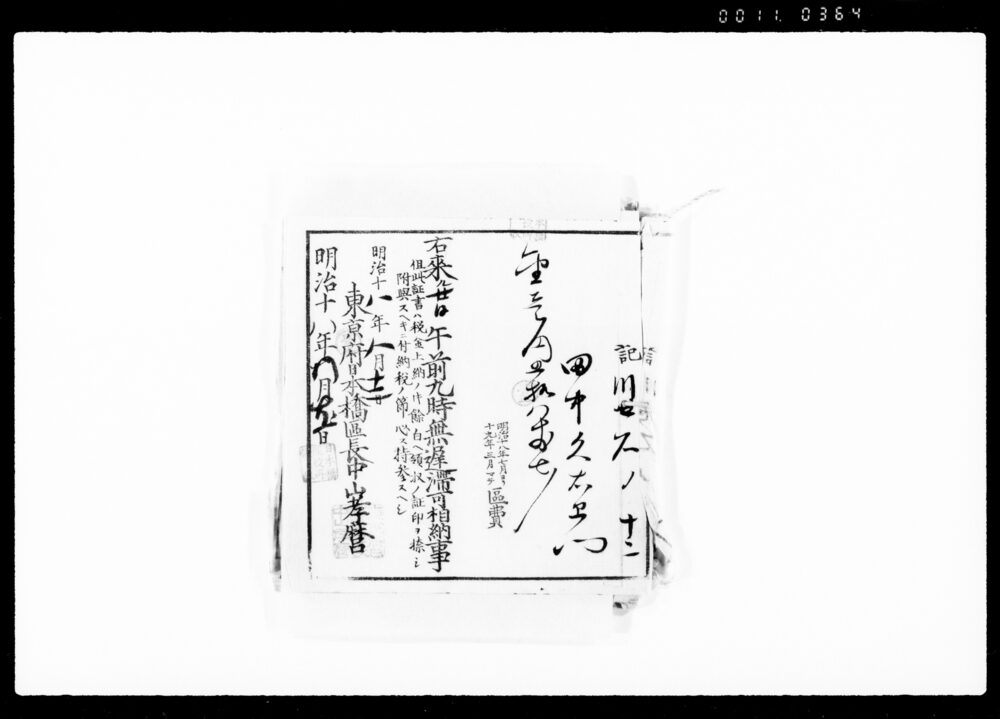 0011. 0364
記
川 石ノ十二
田中久右衛門
金 円四拾八銭七
明治十八年七月ヨリ
十九年三月マテ
區費
右來 廿日午前九時無遅滞可相納事
但此証書ハ税金上納ノ時餘白ヘ領収ノ証印ヲ捺シ
附與スヘキニ付納税ノ節心ス持参スヘシ
明治十八年八月十二日
東京府日本橋區長中山孝麿
明治十八年八月 日